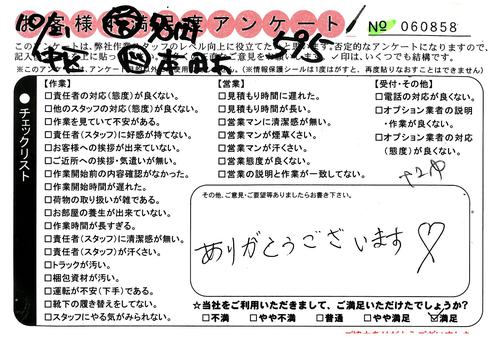 お客様不満足度アンケート
№ 060858
このアンケートは、弊社作業スタッフのレベル向上に役立てた
否定的なアンケートになりますので、
ご意見をお
✓印は、いくつでも結構です。
(※情報保護シールは1度はがすと、再度貼りなおすことはできません)
チェックリスト
【作業】
□責任者の対応(態度)が良くない。
□他のスタッフの対応(態度)が良くない。
□作業を見ていて不安がある。
□責任者(スタッフ)に好感が持てない。
□お客様への挨拶が出来ていない。
□ご近所への挨拶・気遣いが無い。
□作業開始前の内容確認がなかった。
□作業開始時間が遅れた。
□荷物の取り扱いが雑である。
□お部屋の養生が出来ていない。
□作業時間が長すぎる。
□責任者(スタッフ)に清潔感が無い。
□責任者(スタッフ)が汗くさい。
□トラックが汚い。
□梱包資材が汚い。
□運転が不安(下手)である。
□靴下の履き替えをしてない。
□スタッフにやる気がみられない。
【営業】
□見積もり時間に遅れた。
□見積もり時間が長い。
□営業マンに清潔感が無い。
□営業マンが煙草くさい。
□営業マンが汗くさい。
□営業態度が良くない。
□営業の説明と作業が一致してない。
【受付・その他】
□電話の対応が良くない。
□オプション業者の説明
・作業が良くない。
□オプション業者の対応
(態度)が良くない。
その他、ご意見・ご要望等ありましたらお書き下さい。
ありがとうございます♡
☆当社をご利用いただきまして、ご満足いただけたでしょうか?
□不満 □やや不満 □普通 □やや満足 ☑満足